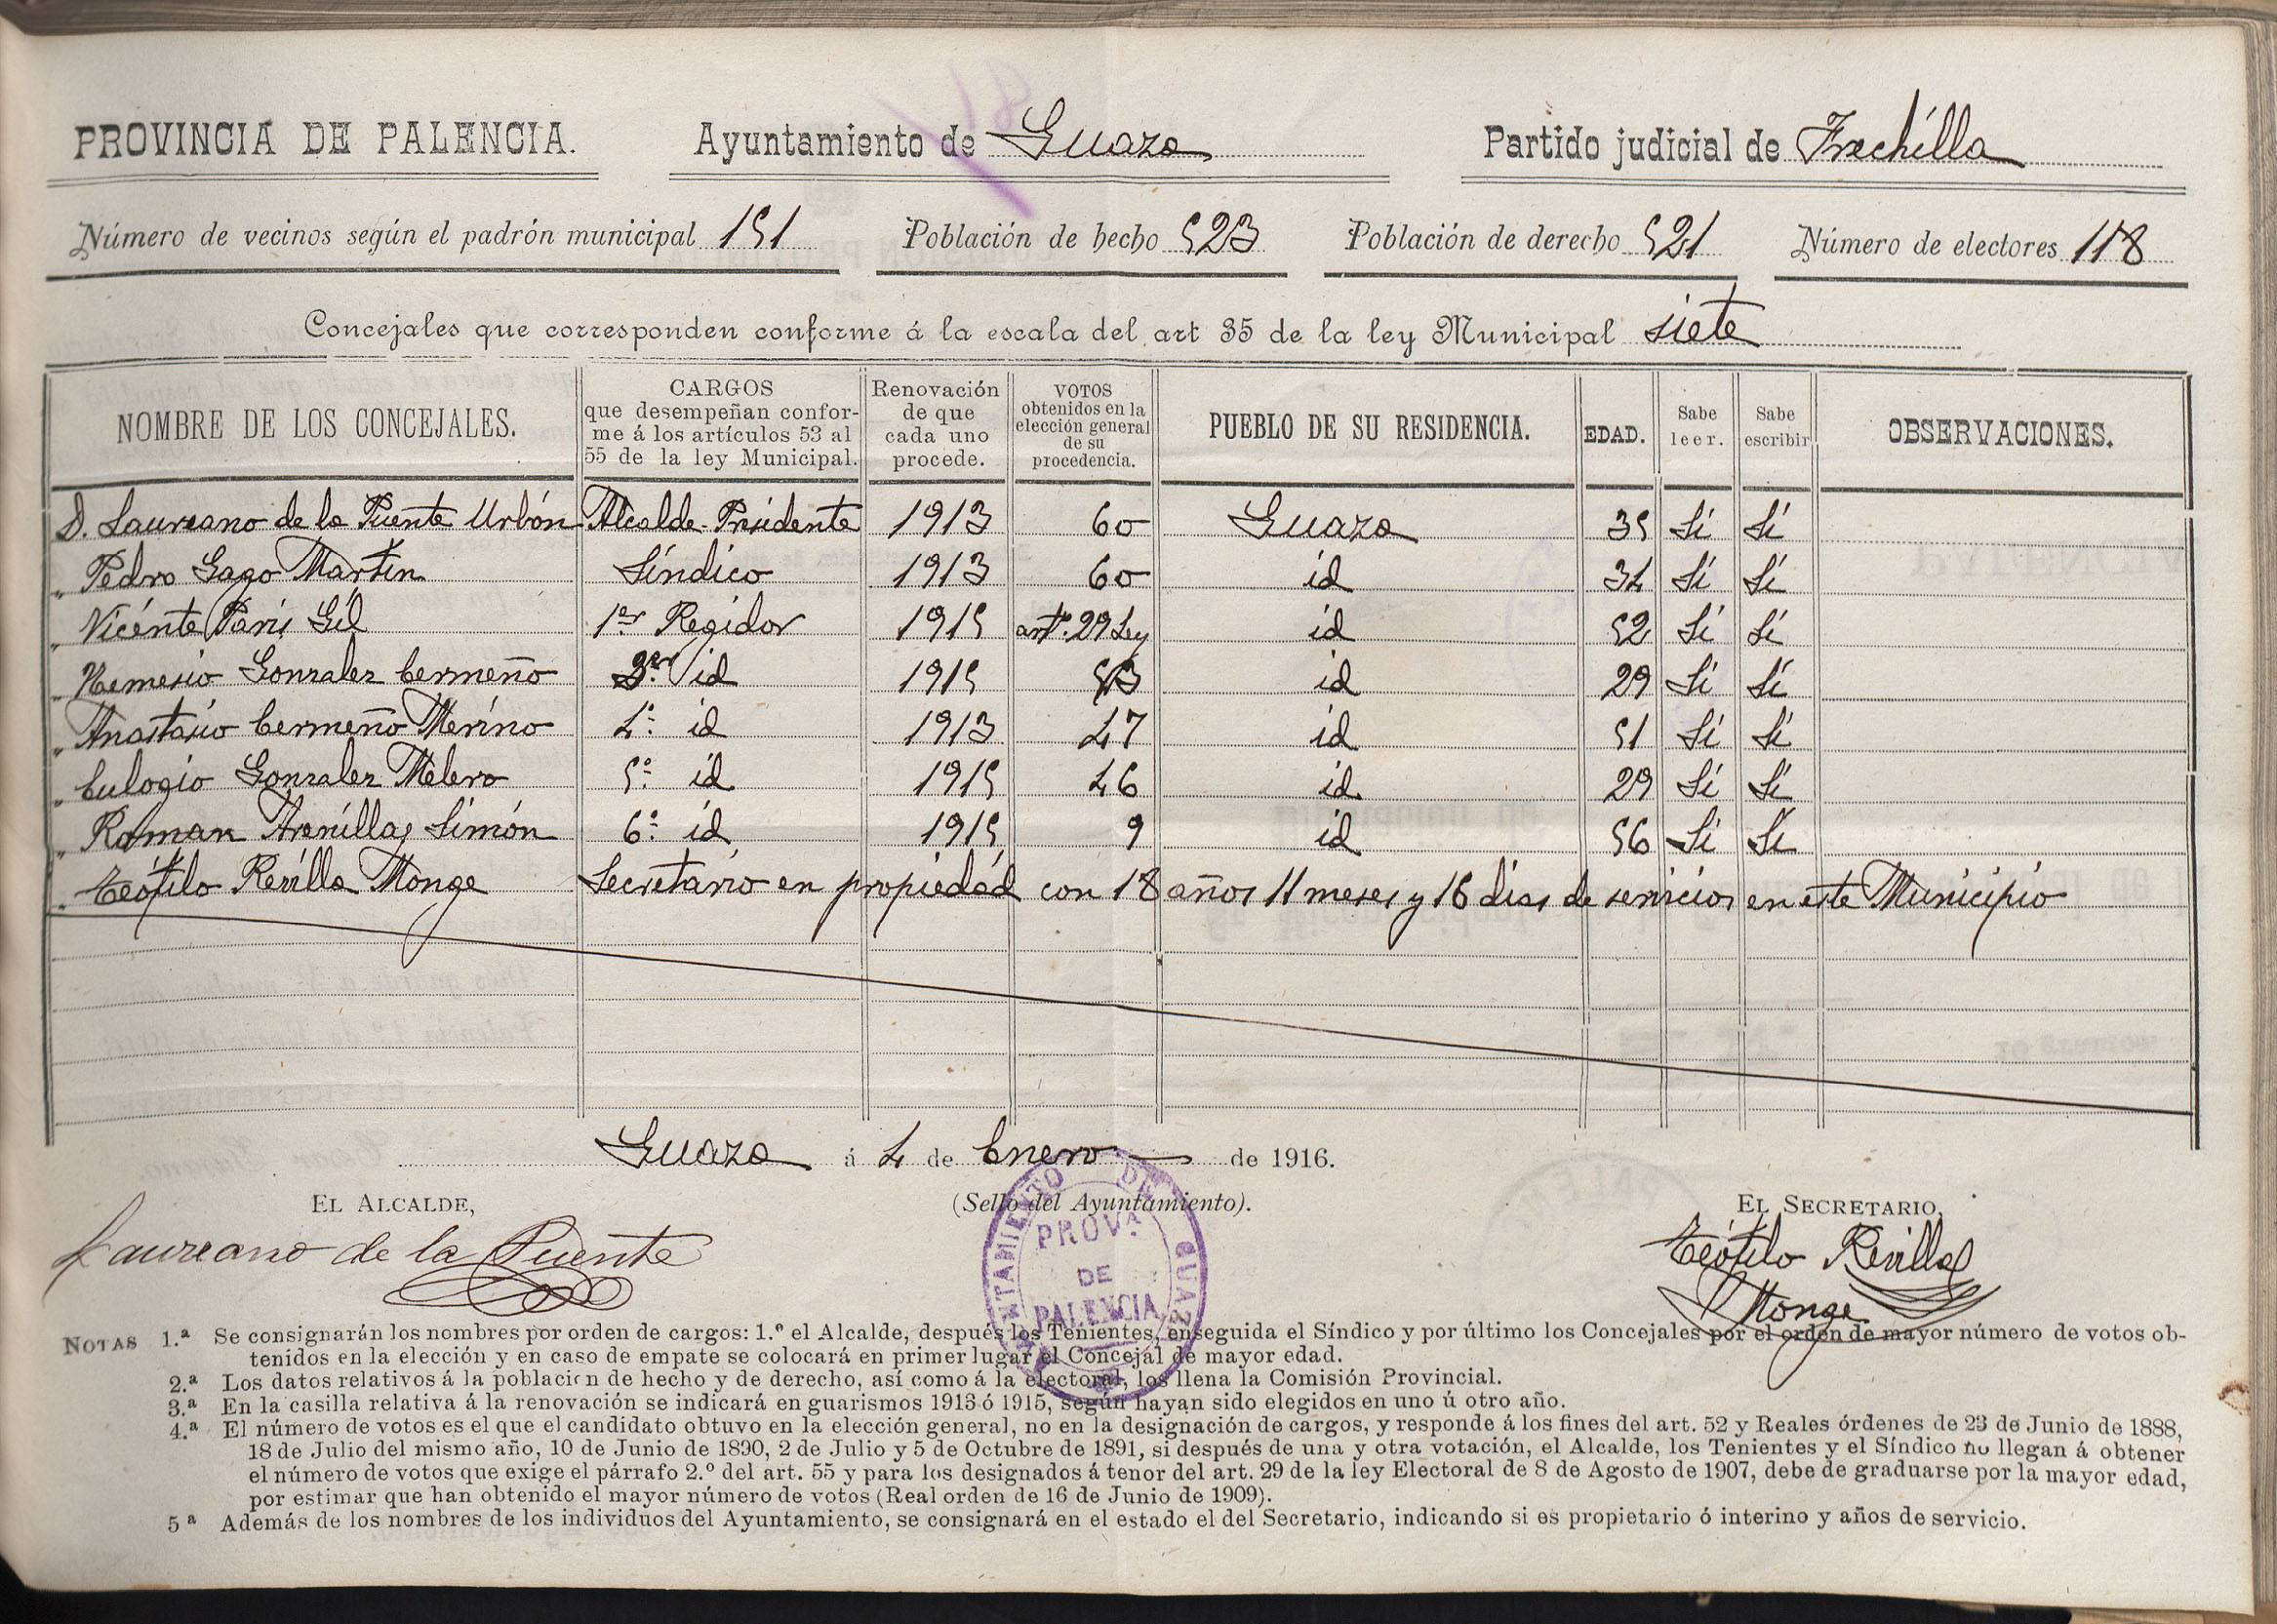 PROVINCIA DE PALENCIA. Ayuntamiento de Guaza Partido judicial de Frechilla
Número de vecinos según el padrón municipal 151 Población de hecho 523 Población de derecho 521 Número de electores 118
Concejales que corresponden conforme á la escala del art 35 de la ley Municipal siete
NOMBRE DE LOS CONCEJALES. CARGOS que desempeñan conforme á los artículos 53 al 55 de la ley Municipal. Renovación de que cada uno procede. VOTOS obtenidos en la elección general de su procedencia. PUEBLO DE SU RESIDENCIA. EDAD. Sabe leer. Sabe escribir OBSERVACIONES.
D. Laureano de la Puente Urbón Alcalde-Presidente 1913 60 Guaza 35 Sí Sí
" Pedro Gago Martín Síndico 1913 60 id 34 Sí Sí
" Vicente Paris Gil 1er Regidor 1915 artº. 29 Ley id 52 Sí Sí
" Nemesio Gonzalez Cermeño 3er id 1915 53 id 29 Sí Sí
" Anastasio Cermeño Merino 4º id 1913 47 id 51 Sí Sí
" Eulogio Gonzalez Melero 5º id 1915 46 id 29 Sí Sí
" Roman Arenillas Simón 6º id 1915 9 id 56 Sí Sí
" Teófilo Revilla Monge Secretario en propiedad con 18 años 11 meses y 16 dias de servicios en este Municipio
Guaza á 4 de Enero de 1916.
EL ALCALDE, (Sello del Ayuntamiento). EL SECRETARIO,
Laureano de la Puente
Teófilo Revilla
Monge
AYUNTAMIENTO DE GUAZA
PROVª
DE
PALENCIA
NOTAS 1.ª Se consignarán los nombres por orden de cargos: 1.º el Alcalde, después los Tenientes, enseguida el Síndico y por último los Concejales por el orden de mayor número de votos ob-
tenidos en la elección y en caso de empate se colocará en primer lugar el Concejal de mayor edad.
2.ª Los datos relativos á la población de hecho y de derecho, así como á la electoral, los llena la Comisión Provincial.
3.ª En la casilla relativa á la renovación se indicará en guarismos 1913 ó 1915, según hayan sido elegidos en uno ú otro año.
4.ª El número de votos es el que el candidato obtuvo en la elección general, no en la designación de cargos, y responde á los fines del art. 52 y Reales órdenes de 23 de Junio de 1888,
18 de Julio del mismo año, 10 de Junio de 1890, 2 de Julio y 5 de Octubre de 1891, si después de una y otra votación, el Alcalde, los Tenientes y el Síndico no llegan á obtener
el número de votos que exige el párrafo 2.º del art. 55 y para los designados á tenor del art. 29 de la ley Electoral de 8 de Agosto de 1907, debe de graduarse por la mayor edad,
por estimar que han obtenido el mayor número de votos (Real orden de 16 de Junio de 1909).
5ª Además de los nombres de los individuos del Ayuntamiento, se consignará en el estado el del Secretario, indicando si es propietario ó interino y años de servicio.